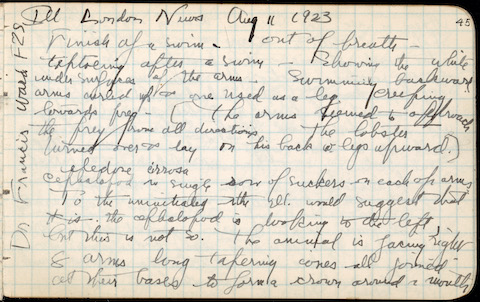 Ill London News Aug 11 1923
45
Finish of a swim - out of breath -
after a swim - showing the white
under surfaces of the arms - Swimming backward
arms curled up - one used as a leg creeping
towards prey - (The arms seemed to approach
the prey from all directions. The lobster
turned over & lay on his back & legs upward.)
eledone cirrosa
cephalopod single row of suckers on each of arms
To the uninitiated the ill. would suggest that
it is the cephalopod is looking to the left,
but this is not so. The animal is facing right
8 arms long tapering cones all joined
at their bases to form a crown around a mouth
Dr. Francis Ward FZS